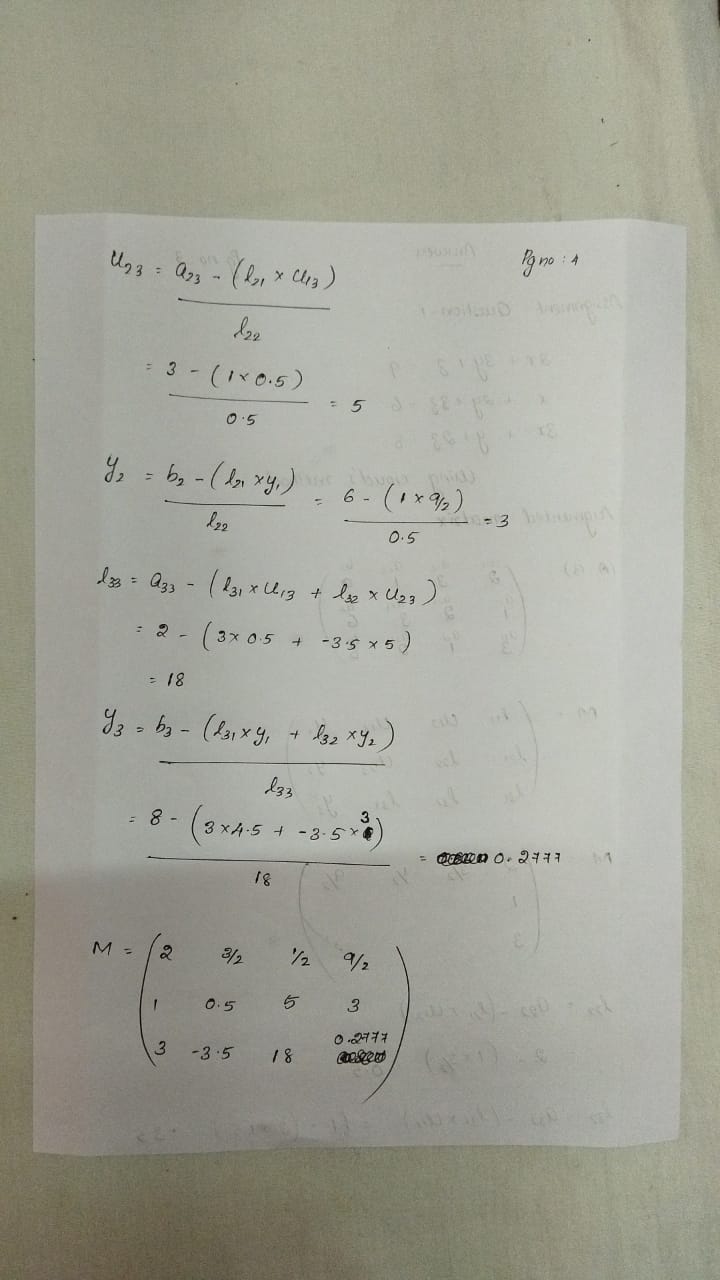 Pg no : 4
U23 = a23 - (l21 x U13)
l22
= 3 - (1x0.5)
0.5
= 5
y2 = b2 - (l21 xy1)
l22
= 6 - (1 x 9/2)
0.5
= 3
l33 = a33 - (l31 x U13 + l32 x U23)
= 2 - (3x 0.5 + -3.5 x 5)
= 18
y3 = b3 - (l31 x y1 + l32 xy2)
l33
= 8 - (3 x4.5 + -3.5 x 3)
18
= 0.2777
M = (2 3/2 1/2 9/2
1 0.5 5 3
3 -3.5 18 0.2777)